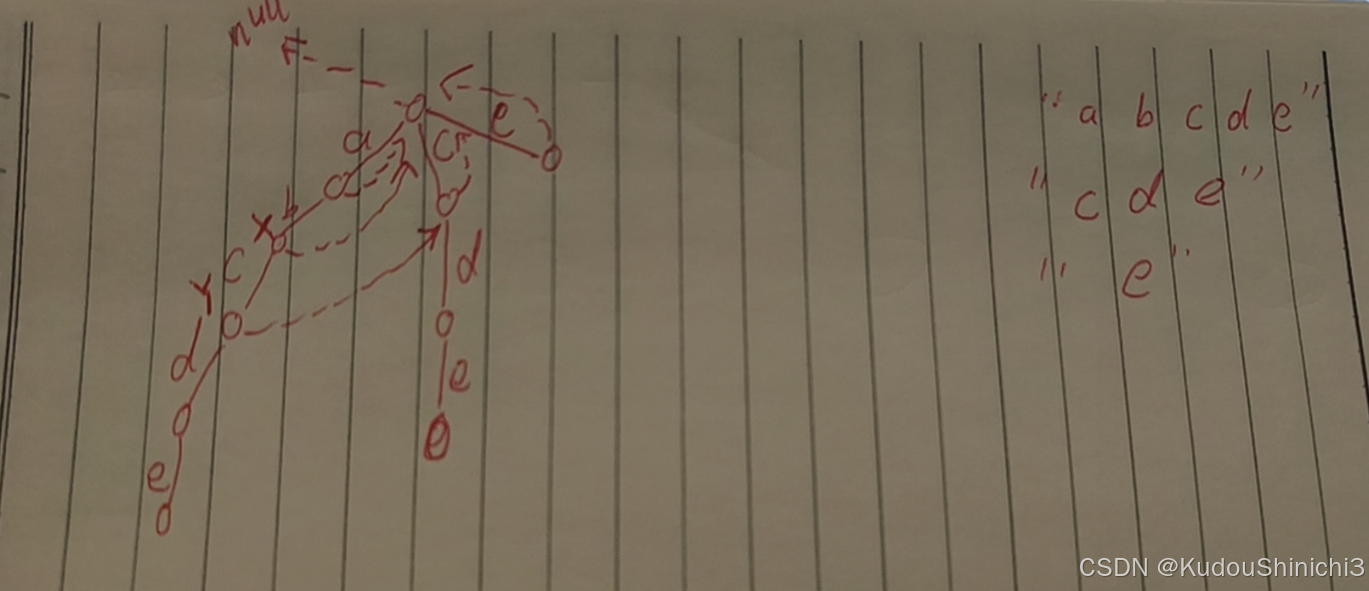 null
a
e
c
b
x
c
d
y
d
e
e
"a b c d e"
"c d e"
"e"
CSDN @KudouShinichi3